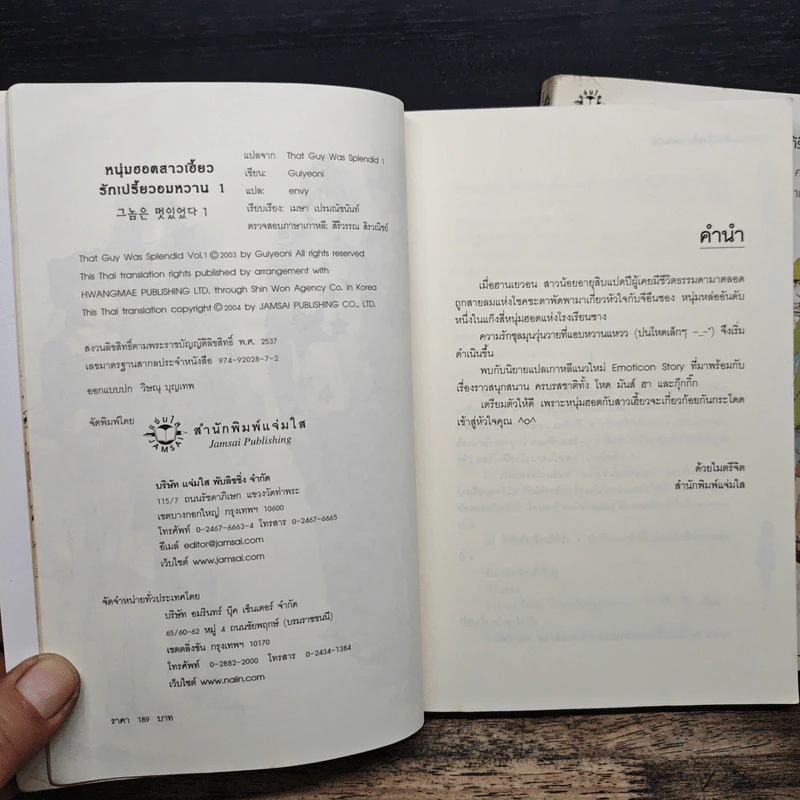 หนุ่มฮอตสาวเฮี้ยว
รักเปรี้ยวอมหวาน 1
그놈은 멋있었다 1
แปลจาก That Guy Was Splendid 1
เขียน: Guiyeoni
แปล: envy
เรียบเรียง: เมษา เปรมณัชนันท์
ตรวจสอบภาษาเกาหลี: สิริวรรณ สิรวณิชย์
That Guy Was Splendid Vol.1 © 2003 by Guiyeoni All rights reserved
This Thai translation rights published by arrangement with
HWANGMAE PUBLISHING LTD. through Shin Won Agency Co. in Korea
This Thai translation copyright © 2004 by JAMSAI PUBLISHING CO., LTD.
สงวนลิขสิทธิ์ตามพระราชบัญญัติลิขสิทธิ์ พ.ศ. 2537
เลขมาตรฐานสากลประจำหนังสือ 974-92028-7-2
ออกแบบปก วิษณุ บุญเทพ
จัดพิมพ์โดย
แจ่มใส
JAMSAI
สำนักพิมพ์แจ่มใส
Jamsai Publishing
บริษัท แจ่มใส พับลิชชิ่ง จำกัด
115/7 ถนนรัชดาภิเษก แขวงวัดท่าพระ
เขตบางกอกใหญ่ กรุงเทพฯ 10600
โทรศัพท์ 0-2467-6663-4 โทรสาร 0-2467-6665
อีเมล์ editor@jamsai.com
เว็บไซต์ www.jamsai.com
จัดจำหน่ายทั่วประเทศโดย
บริษัท อมรินทร์ บุ๊ค เซ็นเตอร์ จำกัด
65/60-62 หมู่ 4 ถนนชัยพฤกษ์ (บรมราชชนนี)
เขตตลิ่งชัน กรุงเทพฯ 10170
โทรศัพท์ 0-2882-2000 โทรสาร 0-2434-1384
เว็บไซต์ www.naiin.com
ราคา 189 บาท
คำนำ
เมื่อฮานเยวอน สาวน้อยอายุสิบแปดปีผู้เคยมีชีวิตธรรมดามาตลอด
ถูกสายลมแห่งโชคชะตาพัดพามาเกี่ยวหัวใจกับจีอึนซอง หนุ่มหล่ออันดับ
หนึ่งในแก๊งสี่หนุ่มฮอตแห่งโรงเรียนซาง
ความรักชุลมุนวุ่นวายที่แอบหวานแหวว (ปนโหดเล็กๆ -_-") จึงเริ่ม
ดำเนินขึ้น
พบกับนิยายแปลเกาหลีแนวใหม่ Emoticon Story ที่มาพร้อมกับ
เรื่องราวสนุกสนาน ครบรสชาติทั้ง โหด มันส์ ฮา และกุ๊กกิ๊ก
เตรียมตัวให้ดี เพราะหนุ่มฮอตกับสาวเฮี้ยวจะเกี่ยวก้อยกันกระโดด
เข้าสู่หัวใจคุณ ^o^
ด้วยไมตรีจิต
สำนักพิมพ์แจ่มใส